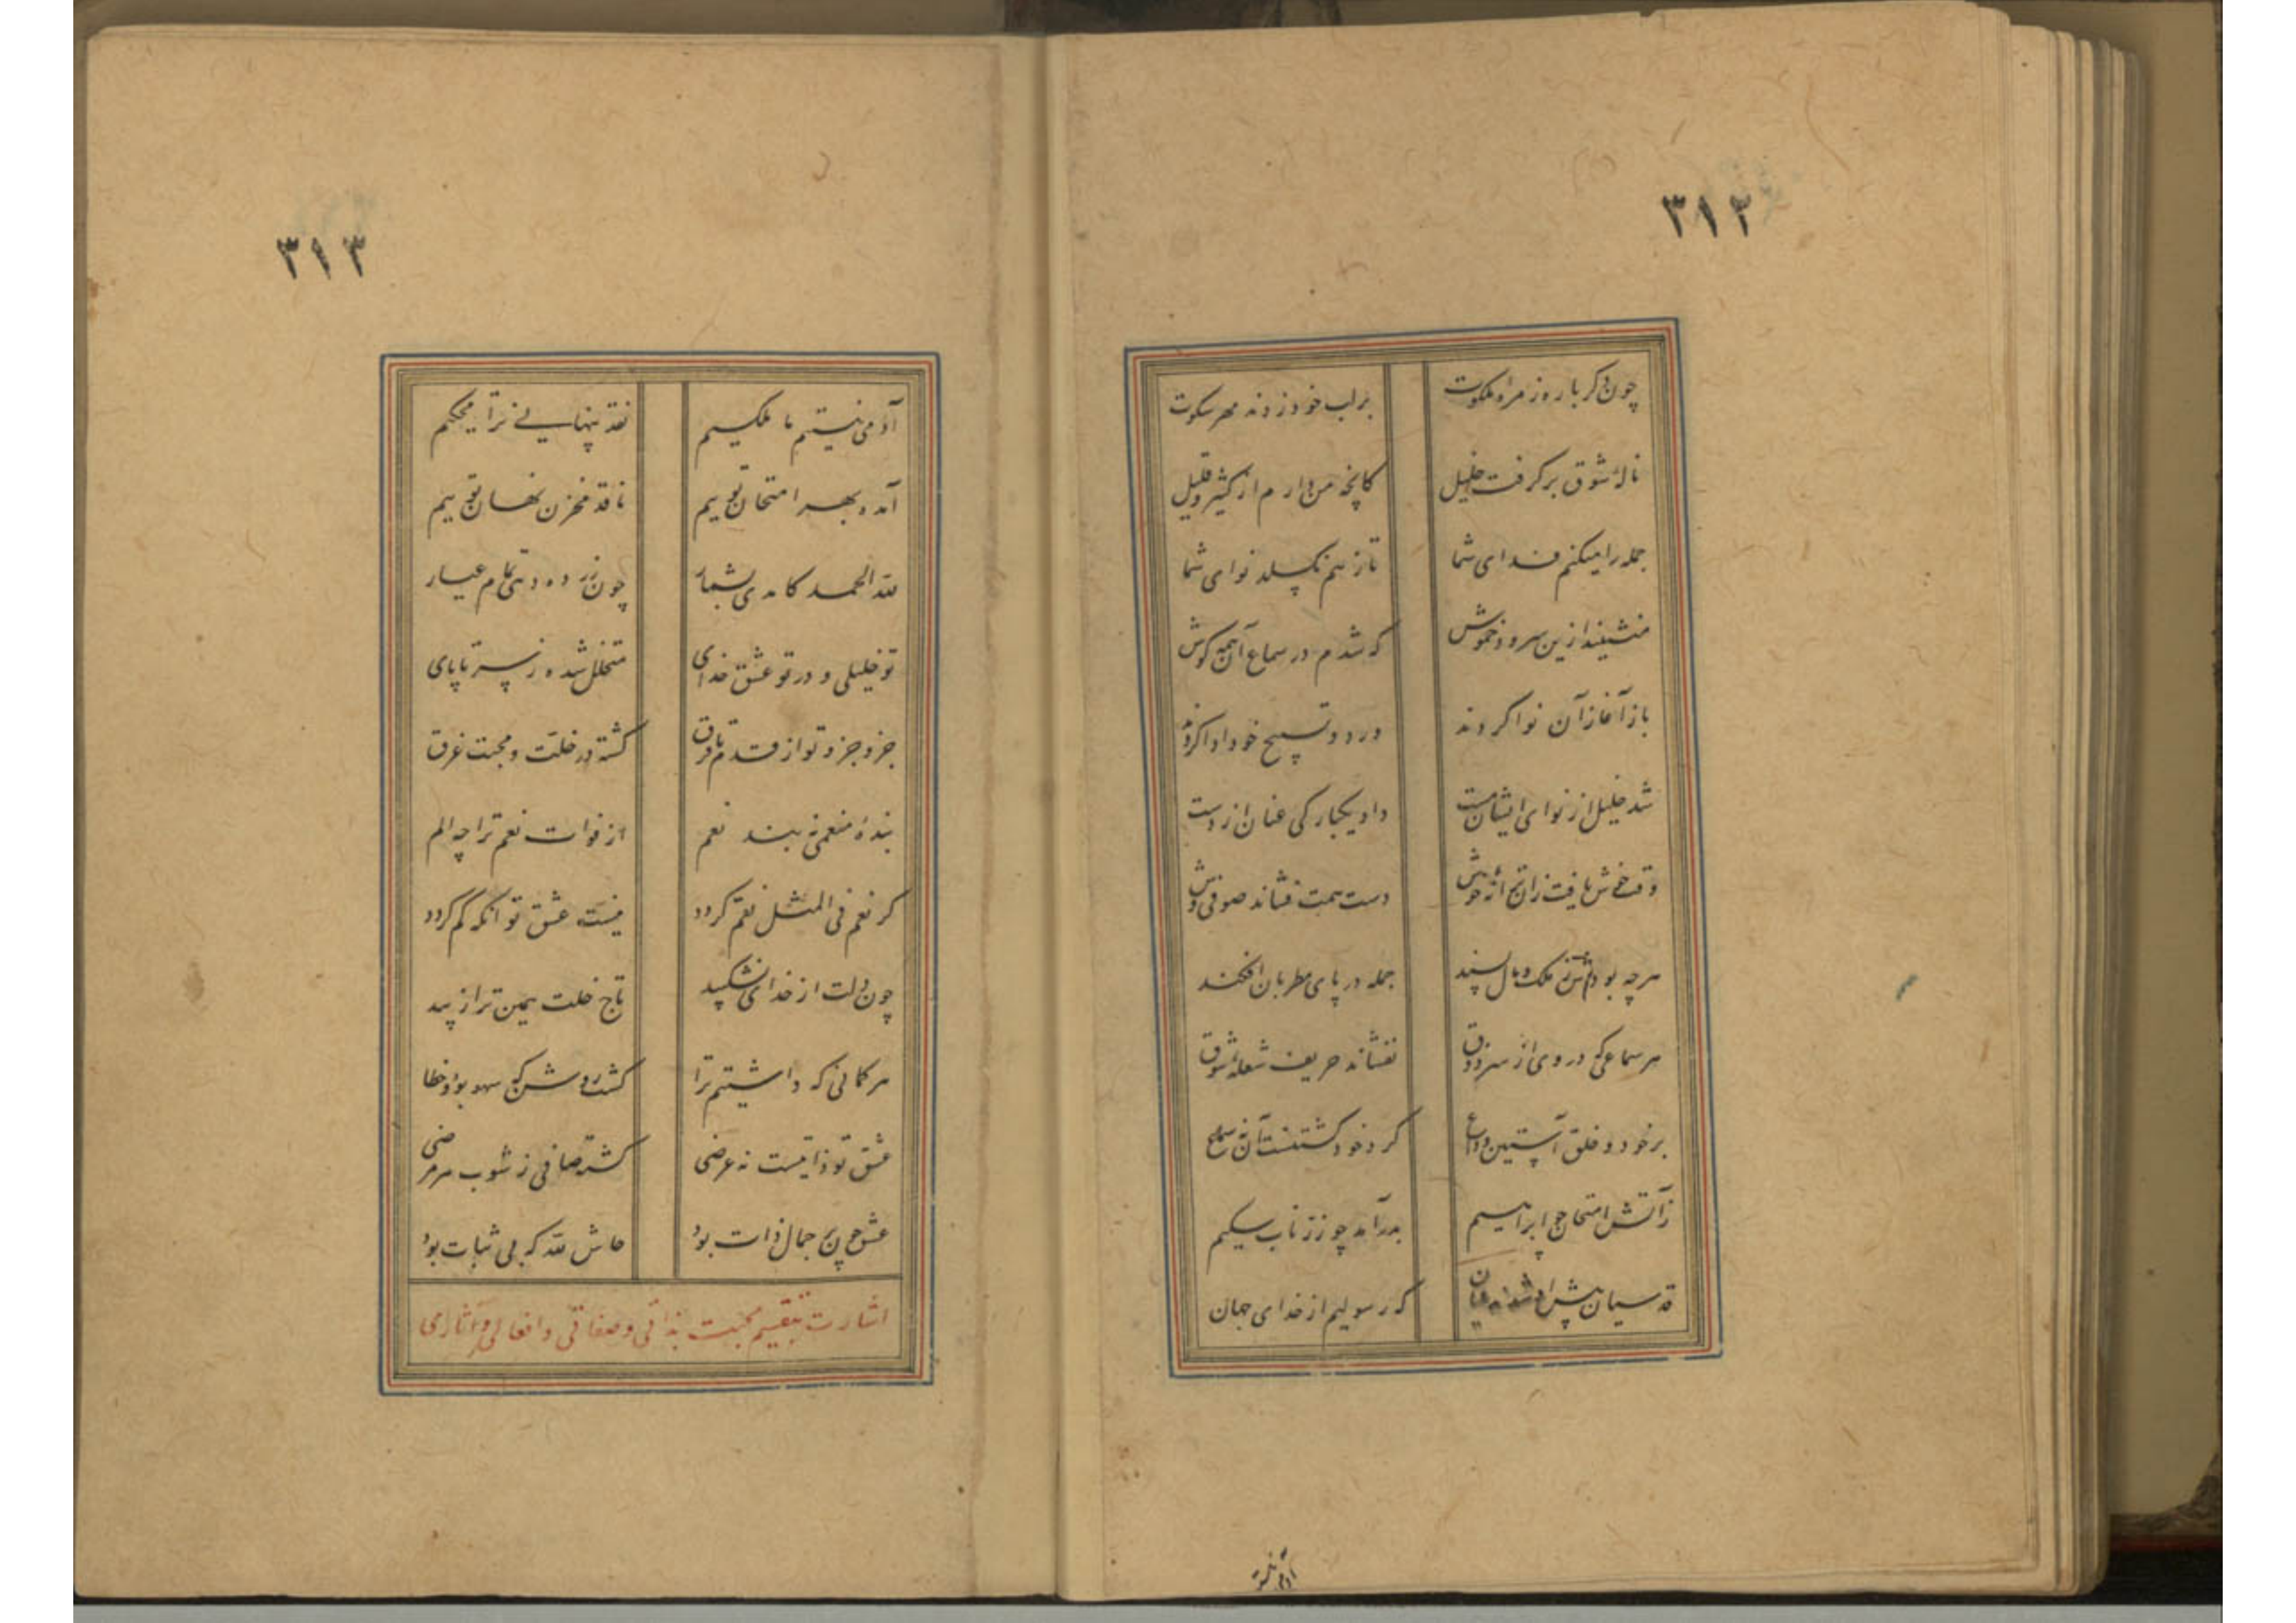 ۳۱۲
چون دکر باره زمرهٔ ملکوت
برلب خود زدند مهر سکوت
نالهٔ شوق برکرفت خلیل
کانچه من دارم از کثیر و قلیل
جمله را میکنم فدای شما
تا ز هم نکسلد نوای شما
منشینید ازین سرود خموش
که شدم در سماع آن همه کوش
باز آغاز آن نوا کردند
ورد و تسبیح خود ادا کردند
شد خلیل از نوای ایشان مست
داد یکبارکی عنان از دست
وقت خوش یافت زان ترانهٔ خوش
دست همت فشاند صوفی وش
هر چه بودش ز ملک و مال پسند
جمله در پای مطربان افکند
هر سماعی که در وی از سر ذوق
نفشاند حریف شعلهٔ شوق
بر خود و خلق آستین وداع
کرد خود کشتنست آن نه سماع
ز آتش امتحان چو ابراهیم
بدر آمد چو زر ناب سلیم
قدسیان پیش او شدند عیان
که رسولیم از خدای جهان
آدمی نیستیم
۳۱۳
آدمی نیستیم ما ملکیم
نقد پنهانی ترا محکیم
آمده بهر امتحان توییم
ناقد مخزن نهان توییم
لله الحمد کامدی بشمار
چون زر ده دهی تمام عیار
تو خلیلی و در تو عشق خدای
متخلل شده ز سر تا پای
جزو جزو تو از قدم تا فرق
کشته در خلت و محبت غرق
بندهٔ منعمی نه بند نعم
از فوات نعم ترا چه الم
کر نعم فی المثل نقم کردد
نیست عشق تو آنکه کم کردد
چون دلت از خدای نشکیبد
تاج خلت همین ترا زیبد
هر کمانی که داشتیم ترا
کشت روشن که سهو بود و خطا
عشق تو ذاتیست نه عرضی
کشته صافی ز شوب هر مرضی
عشق چون بر جمال ذات بود
حاش لله که بی ثبات بود
اشارت بتقسیم محبت بذاتی و صفاتی و افعالی و آثاری